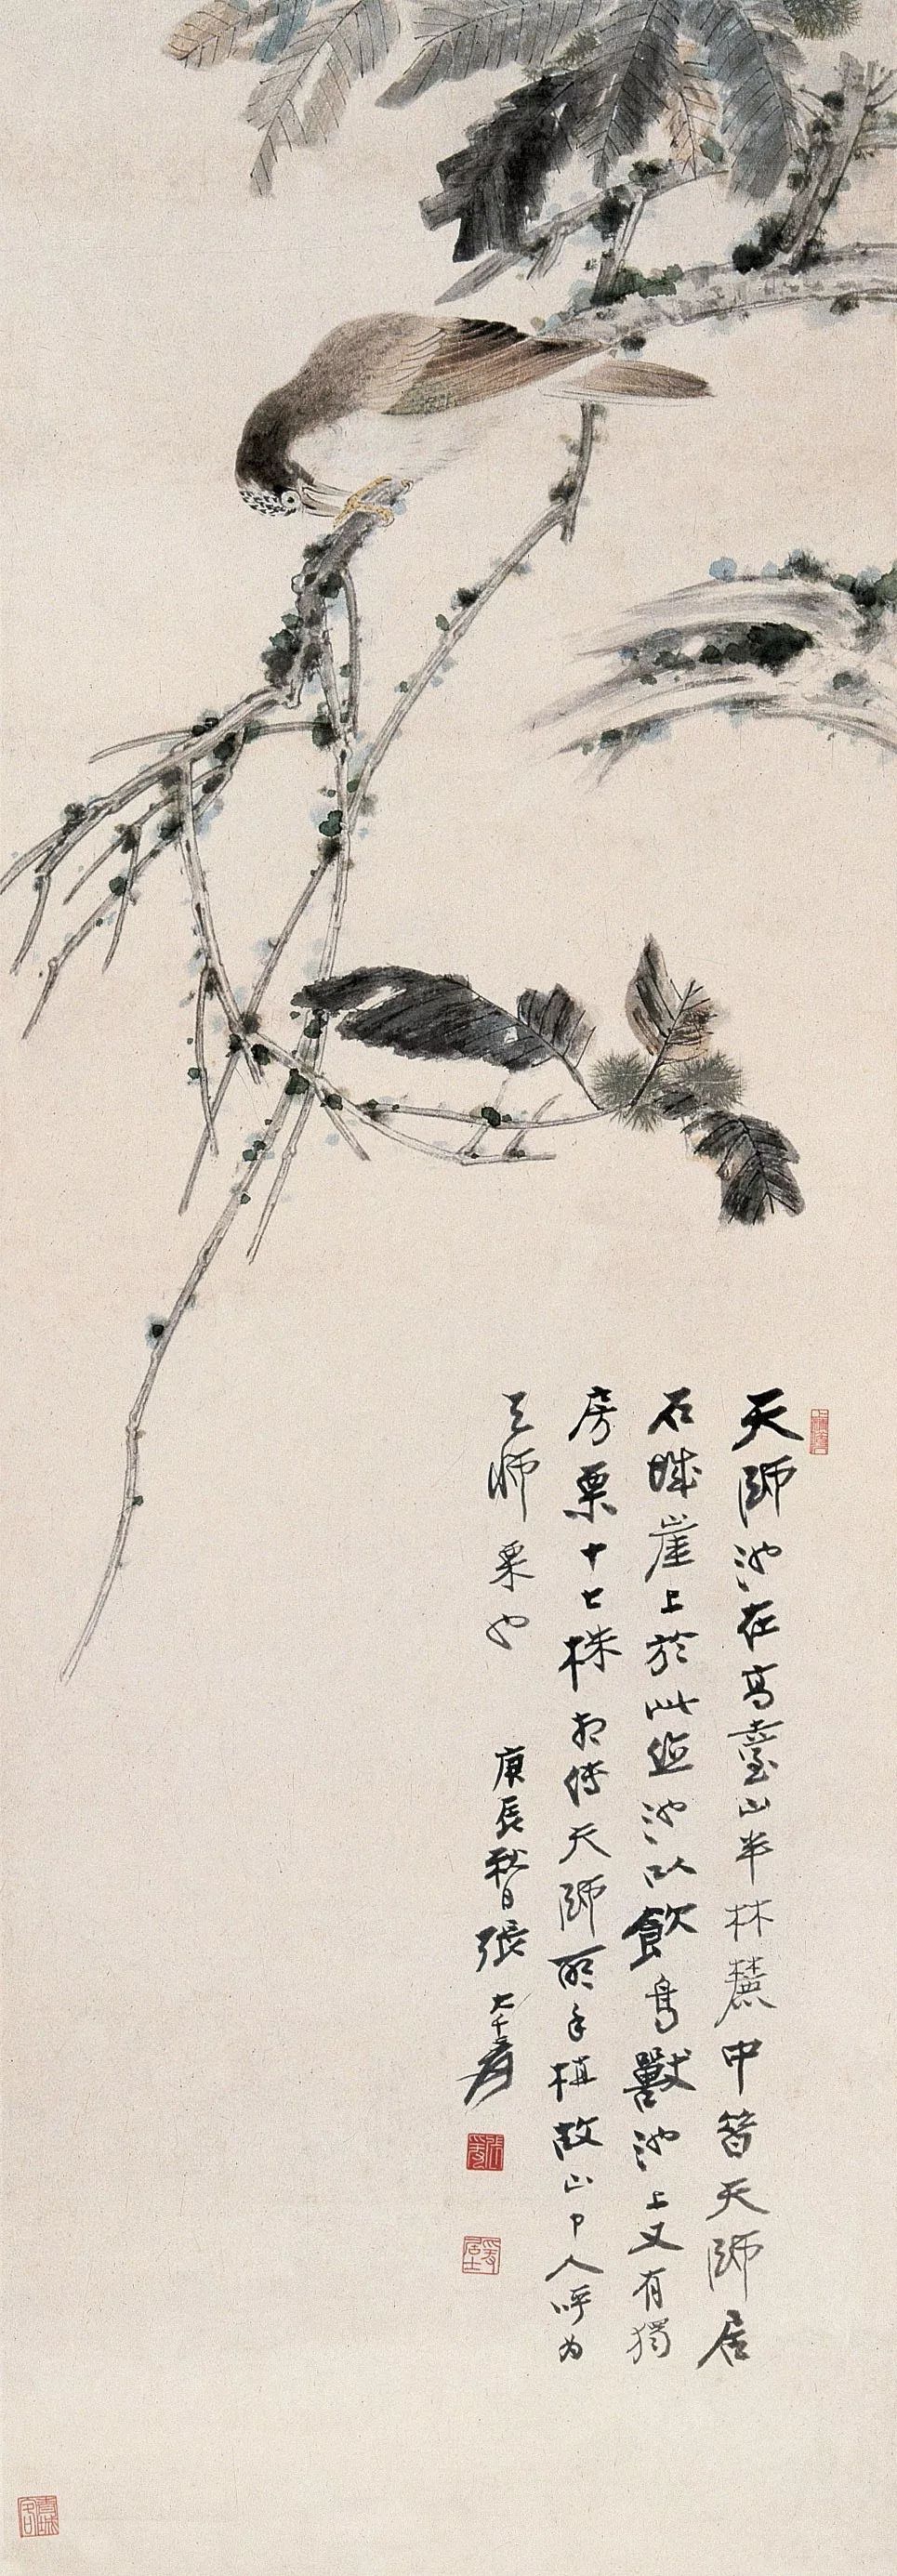 天師池在高臺山半林麓中昔天師居
石城崖上於此鑿池以飲鳥獸池上又有獨
房栗十七株相傳天師所手植故山中人呼為
天師栗也
庚辰秋日張大千爰
張爰
居士
青城客